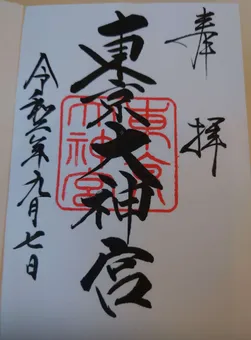 奉拝
東京大神宮
令和六年九月七日
東京大神宮